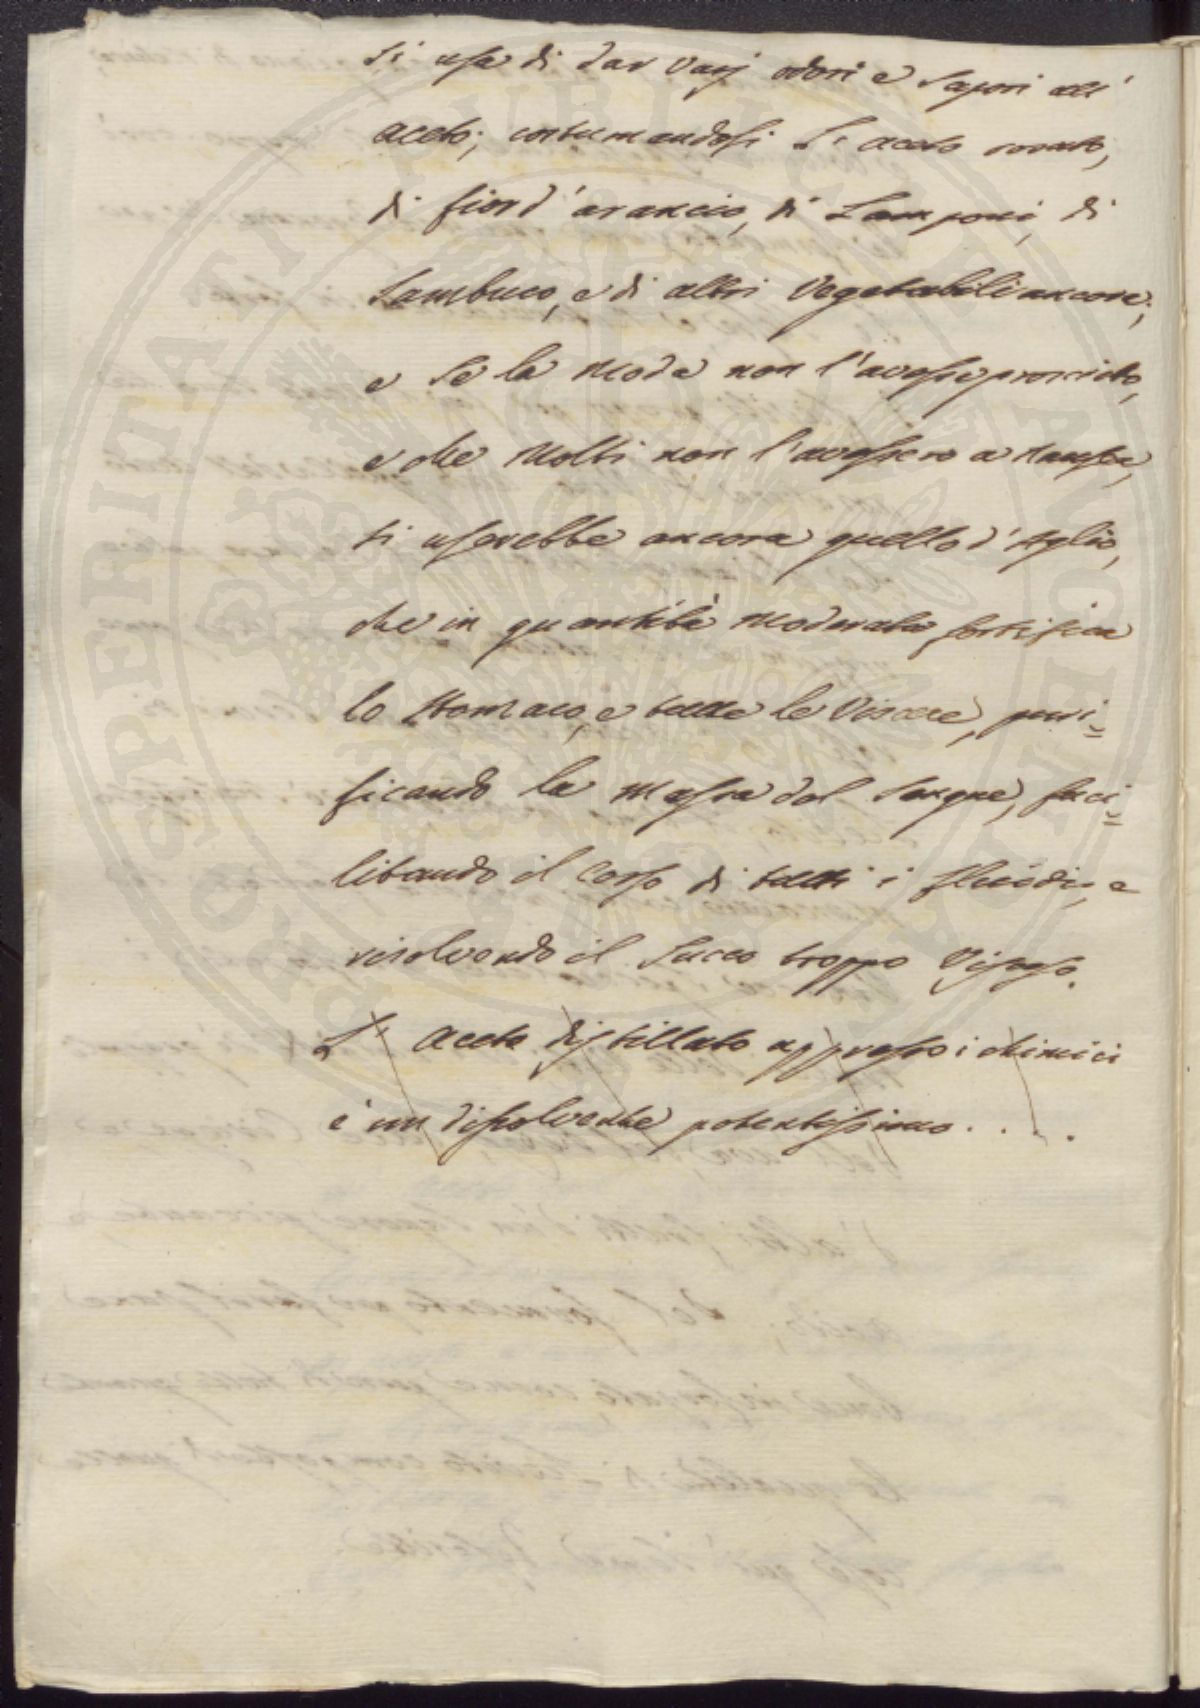 Si usa di dar varj odori e sapori all'
aceto; costumandosi l'aceto rosato,
di fior d'arancio, di Lamponi, di
Sambuco, e di altri Vegetabili ancora;
e se la Moda non l'avesse proscritto,
e che Molti non l'avessero a Nausea,
si userebbe ancora quello d'Aglio,
che in quantità Moderata fortifica
lo Stomaco, e tutte le Viscere, puri=
ficando la Massa del Sangue, faci=
litando il Corso di tutti i fluidi, e
risolvendo il Succo troppo Viscoso.
L'Aceto distillato appresso i chimici
è un dissolvente potentissimo....
PROSPERITATI PUBLICAE AUGENDAE